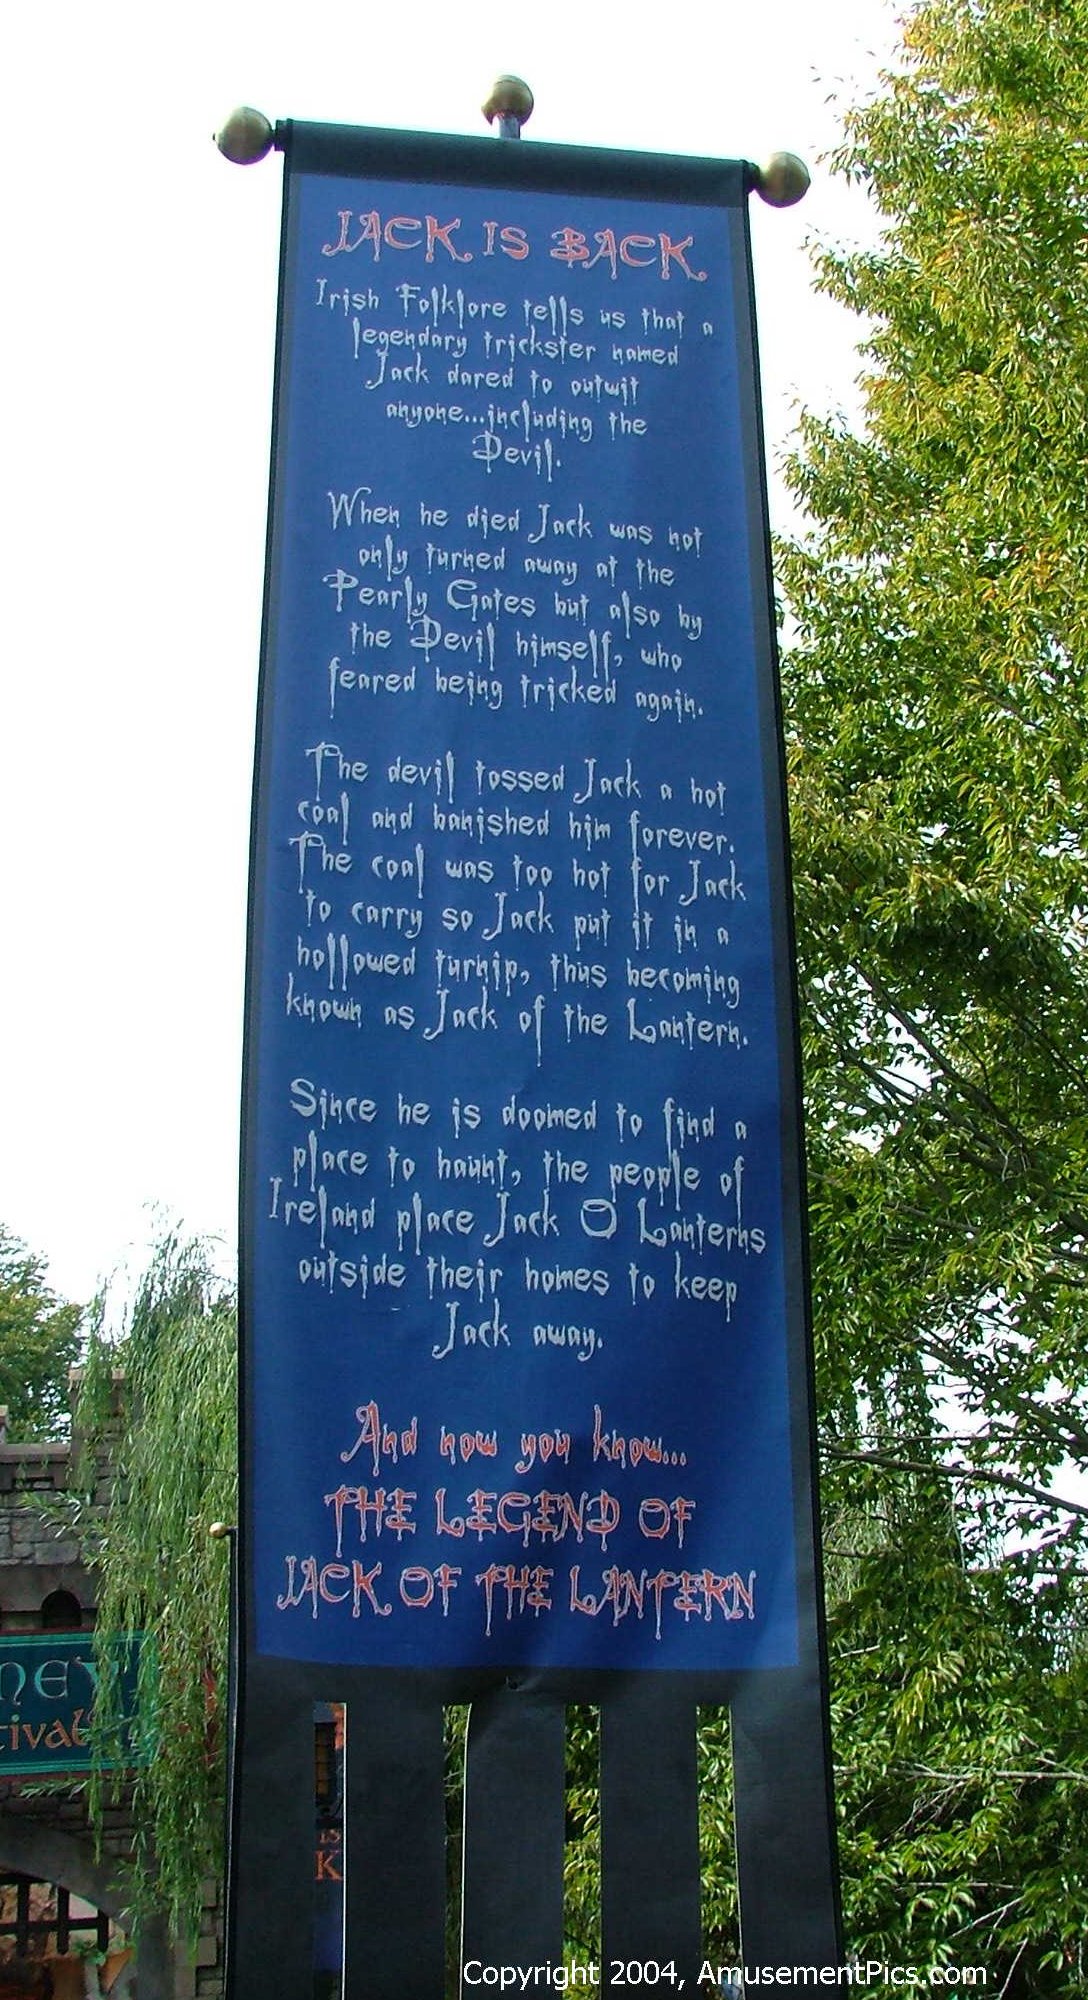 JACK IS BACK
Irish Folklore tells us that a
legendary trickster named
Jack dared to outwit
anyone...including the
Devil.
When he died Jack was not
only turned away at the
Pearly Gates but also by
the Devil himself, who
feared being tricked again.
The devil tossed Jack a hot
coal and banished him forever.
The coal was too hot for Jack
to carry so Jack put it in a
hollowed turnip, thus becoming
known as Jack of the Lantern.
Since he is doomed to find a
place to haunt, the people of
Ireland place Jack O Lanterns
outside their homes to keep
Jack away.
And now you know...
THE LEGEND OF
JACK OF THE LANTERN
NEY
tival
IS
K
Copyright 2004, AmusementPics.com